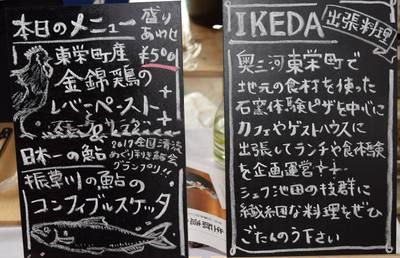 本日のメニュー
盛り
あわせ
¥500
東栄町産
金錦鶏の
レバーペースト
日本一の鮎
2017全国清流
めぐり利き鮎会
グランプリ!!
振草川の鮎の
コンフィブルスケッタ
IKEDA
出張料理
奥三河東栄町で
地元の食材を使った
石窯体験ピザを中心に
カフェやゲストハウスに
出張してランチや食体験
を企画運営中
シェフ池田の抜群に
繊細な料理をぜひ
ごたんのう下さい